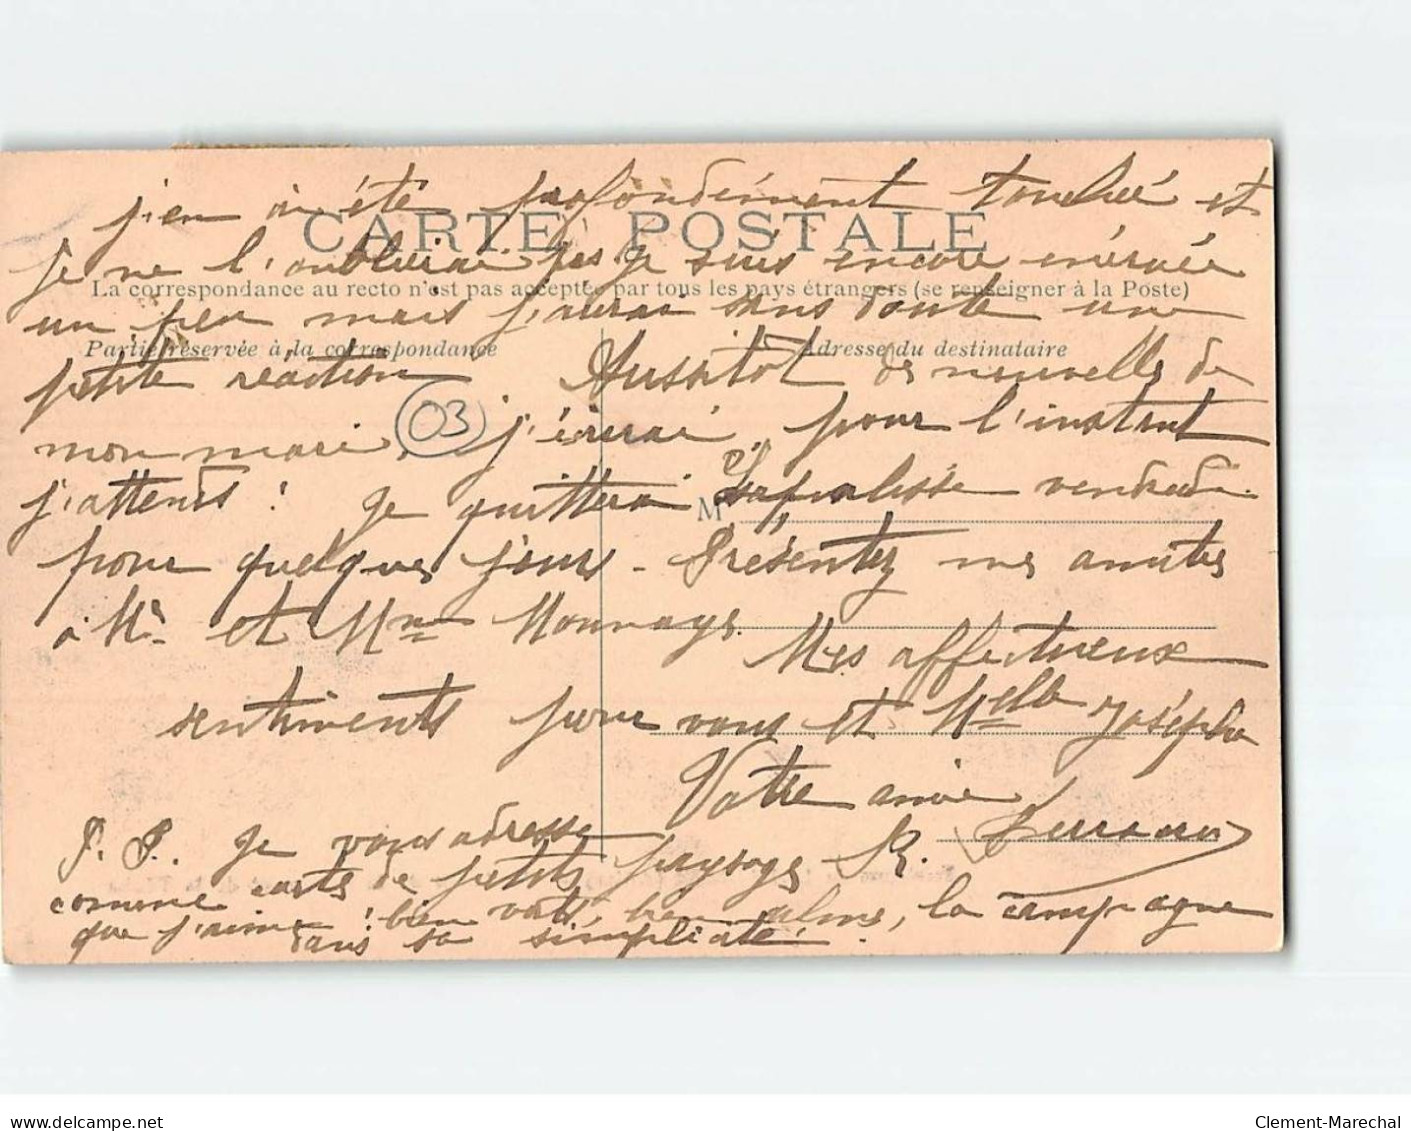 j'en ai été profondément touchée et
CARTE POSTALE
je ne l'oublierai pas je suis encore énervée
La correspondance au recto n'est pas acceptée par tous les pays étrangers (se renseigner à la Poste)
un peu mais j'aurai sans doute une
Partie réservée à la correspondance
Adresse du destinataire
petite réaction Aussitot des nouvelles de
mon mari, j'écrirai, pour l'instant
03
j'attends ! Je quitterai Lapalisse vendredi
M
pour quelques jours - Présentez mes amitiés
à Mr et Mme
Mes affectueux
sentiments pour vous et Melle Josépha
Votre amie
P. S. Je vous adresse R.
comme carte de petits paysages
que j'aime ! bien vats, bien calme, la campagne
dans sa simplicité.
delcampe.net
Clement-Marechal